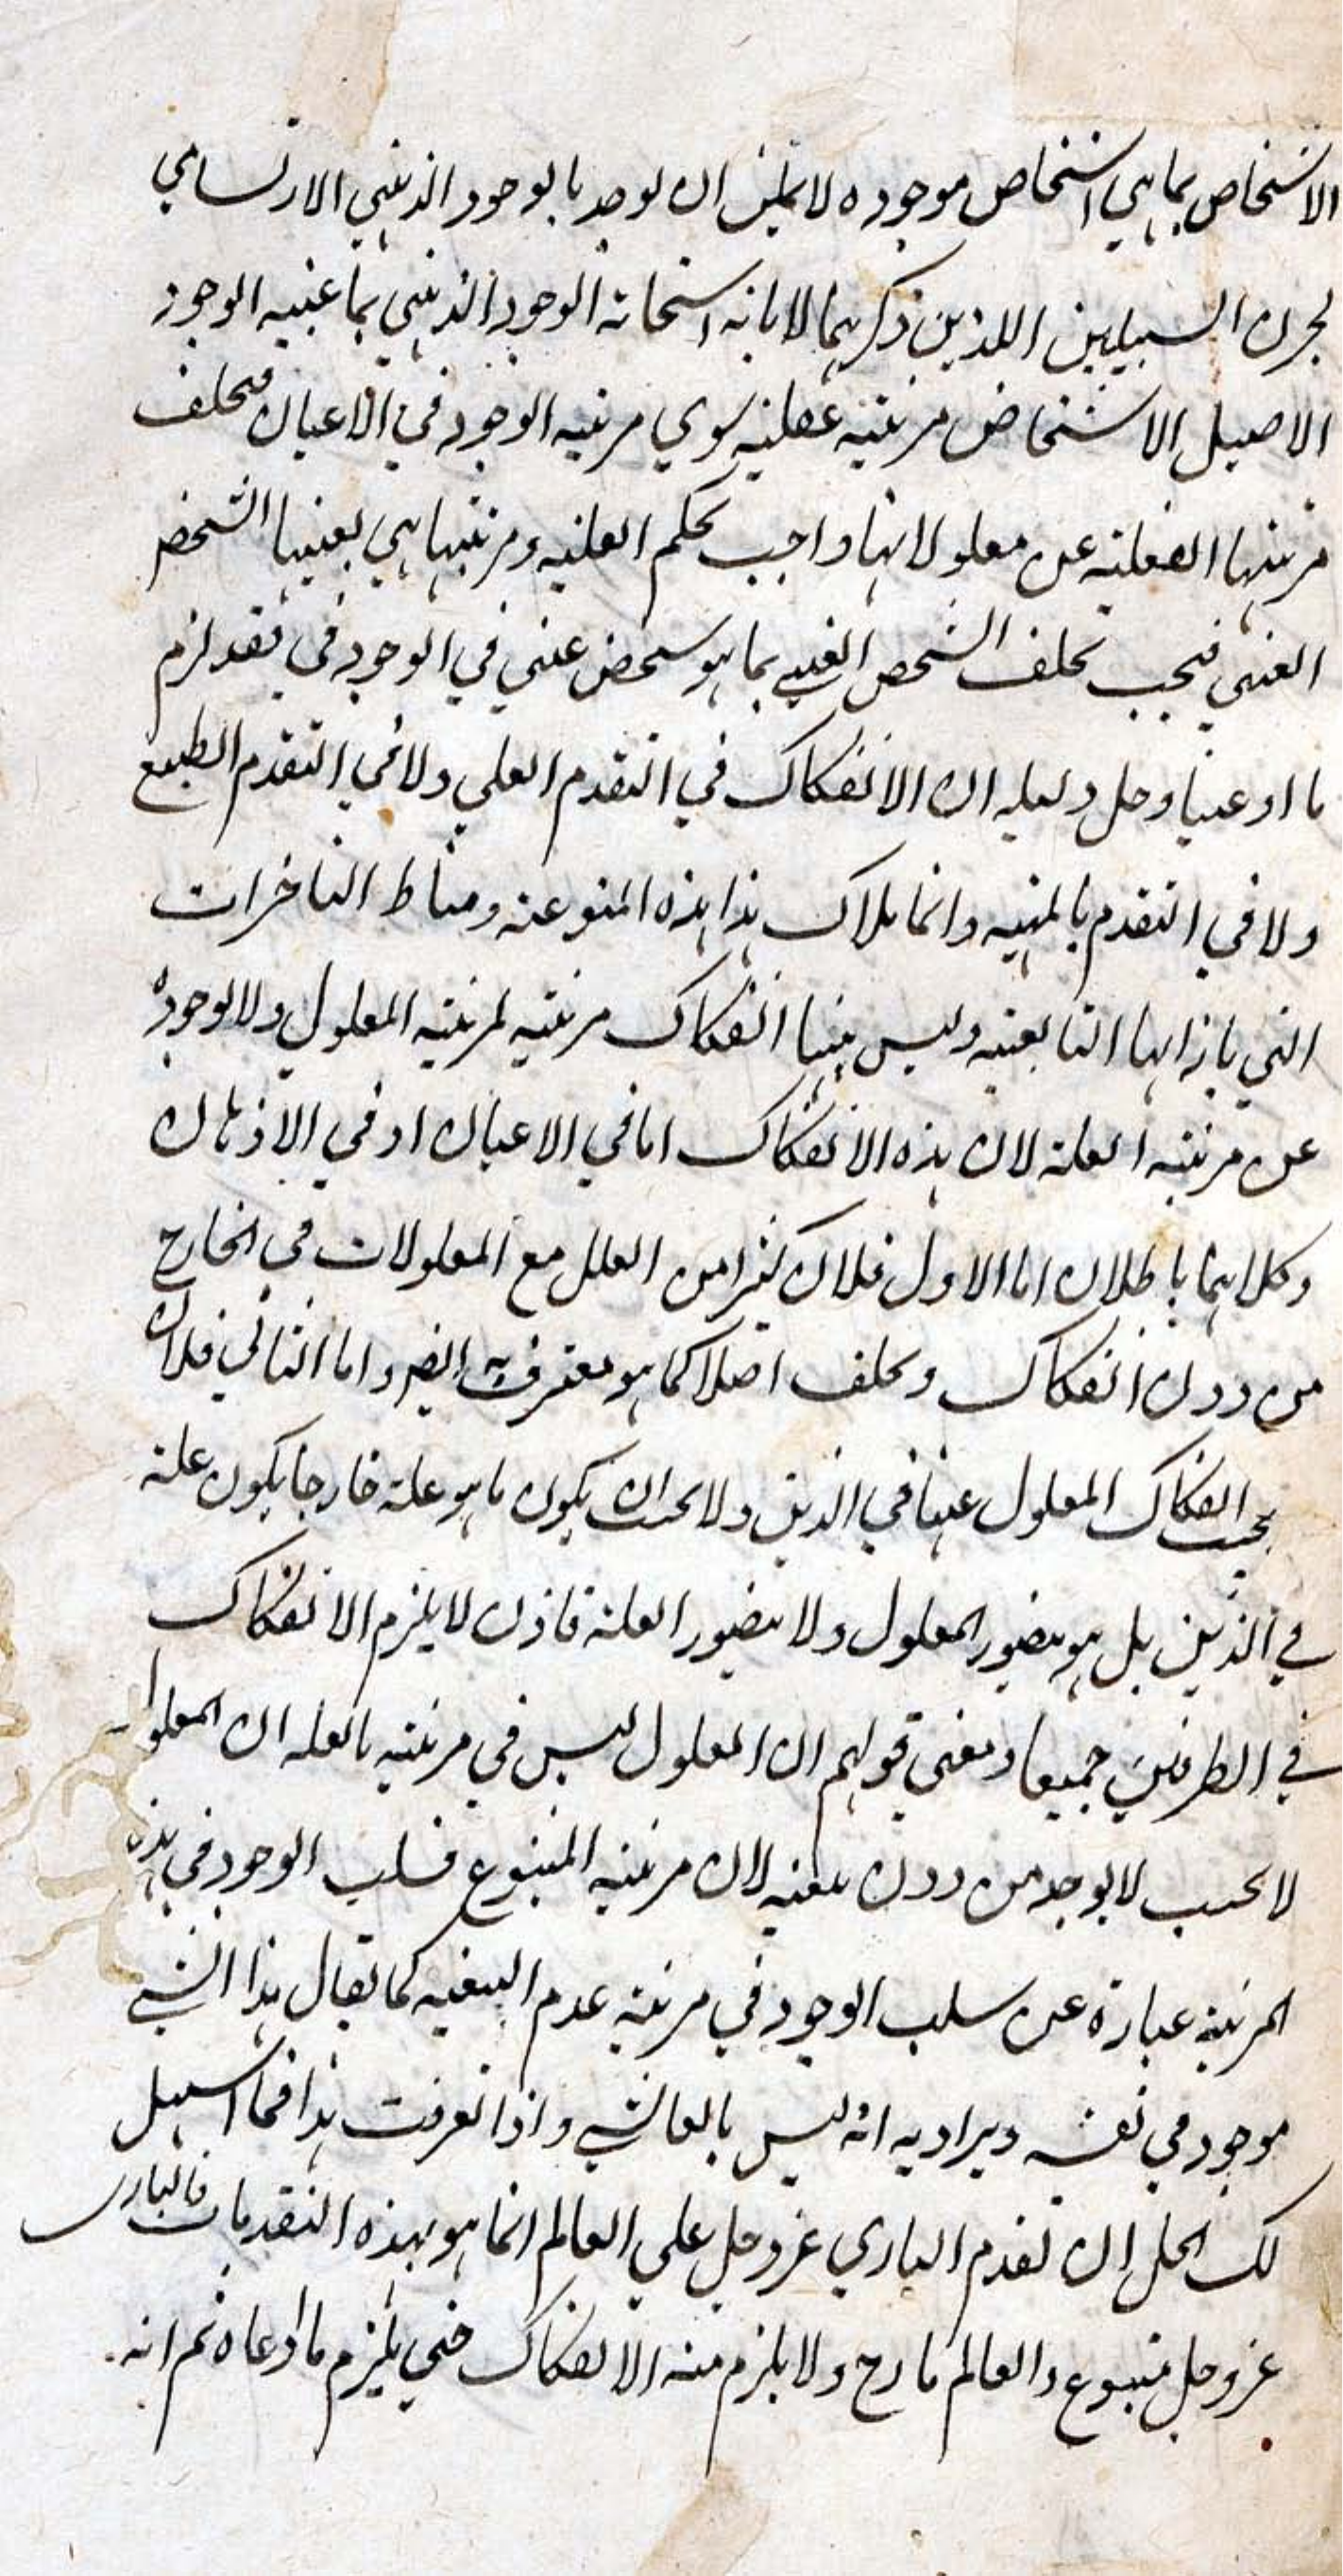 الاشخاص بما هي اشخاص موجوده لا يمكن ان يوجد بالوجود الذهني الارتسامي
السبيلين اللذين ذكرهما لابانه استحاته الوجود الذهني بما عنيه الوجود
الاصيل الاشخاص مرتبته عقلية سوي مرتبه الوجود في الاعيان فتخلف
مرتبتها الفعلية عن معلولاتها واجب بحكم العلية ومرتبتها هي بعينها الشخص
العيني فيجب تخلف الشخص العيني بما هو شخص عيني في الوجود في فقد لزم
ما ادعينا وحل دليله ان الانفكاك في التقدم العلي ولا في التقدم الطبيع
ولا في التقدم بالمهية وانما ملاك هذا هذه المتبوعية ومناط التاخرات
التي بازائها التابعية وليس بينها انفكاك مرتبة لمرتبة المعلول ولا لوجوده
عن مرتبة العلة لان هذه الانفكاك اما في الاعيان او في الاذهان
وكلاهما باطلان اما الاول فلان كثيرا من العلل مع المعلولات في الخارج
من دون انفكاك وتخلف اصلا كما هو معترف به ايضا واما الثاني فلان
يجب انفكاك المعلول عنها في الذهن ولا يجب ان يكون ما هو علة خارجا يكون علة
في الذهن بل هو يتصور المعلول ولا يتصور العلة فاذن لا يلزم الانفكاك
في الطرفين جميعا ومعنى قولهم ان المعلول ليس في مرتبة بالعله ان المعلول
لا يجب لا يوجد من دون تبعيه لان مرتبه المتبوع فسلب الوجود في هذه
المرتبة عبارة عن سلب الوجود في مرتبة عدم التبعيه كما يقال هذا الشي
موجود في نفسه ويراد به انه ليس بالعالشي واذا تعرفت هذا فما اسهل
لك الحل ان تقدم الباري عز وجل علي العالم انما هو بهذه التقدمات فالباري
عز وجل متبوع والعالم ولا يلزم منه الانفكاك حتي يلزم ما ادعاه ثم انه